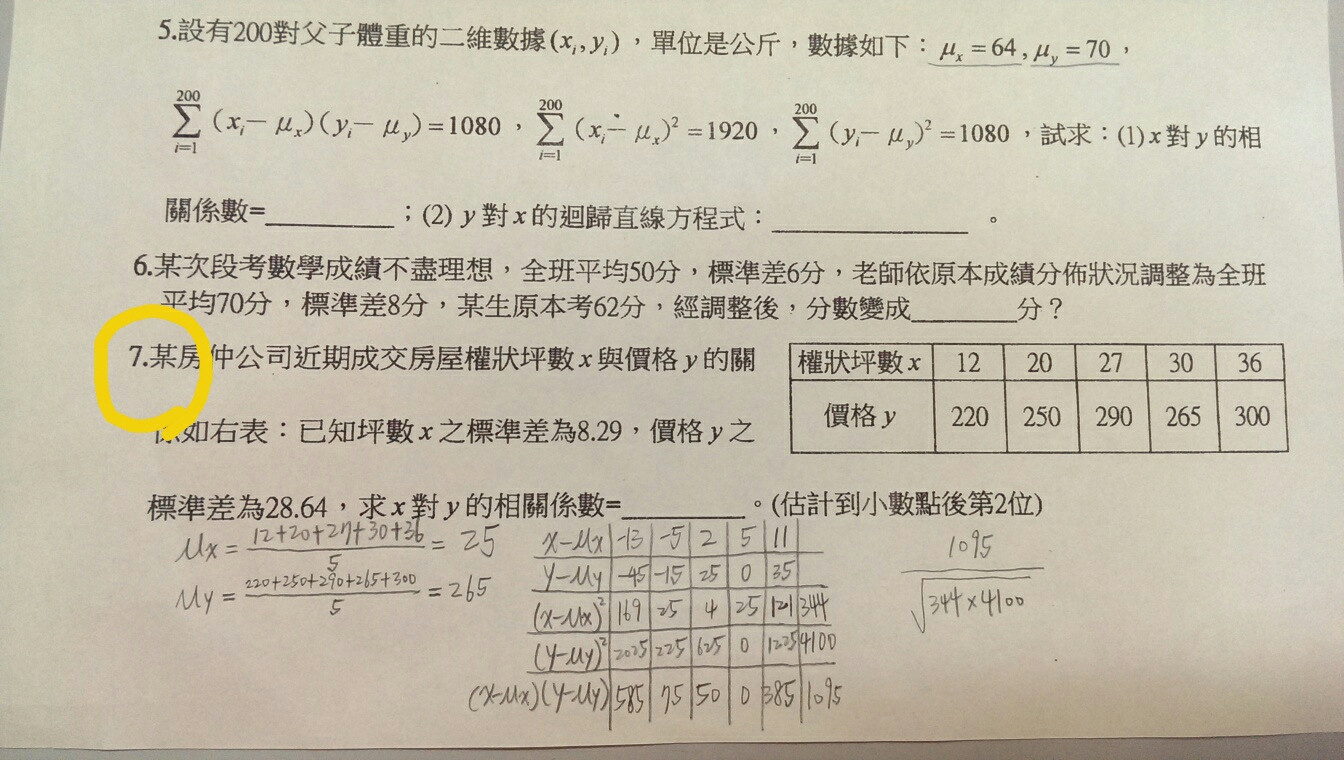 5.設有200對父子體重的二維數據(xᵢ,yᵢ)，單位是公斤，數據如下：μₓ=64,μᵧ=70，
200 200 200
∑(xᵢ−μₓ)(yᵢ−μᵧ)=1080，∑(xᵢ−μₓ)²=1920，∑(yᵢ−μᵧ)²=1080，試求：(1)x對y的相
i=1 i=1 i=1
關係數=________；(2) y對x的迴歸直線方程式：____________。
6.某次段考數學成績不盡理想，全班平均50分，標準差6分，老師依原本成績分佈狀況調整為全班
平均70分，標準差8分，某生原本考62分，經調整後，分數變成______分？
7.某房仲公司近期成交房屋權狀坪數x與價格y的關
係如右表：已知坪數x之標準差為8.29，價格y之
標準差為28.64，求x對y的相關係數=________。(估計到小數點後第2位)
權狀坪數x 12 20 27 30 36
價格y 220 250 290 265 300
μx = (12+20+27+30+36)/5 = 25
μy = (220+250+290+265+300)/5 = 265
x-μx -13 -5 2 5 11
y-μy -45 -15 25 0 35
(x-μx)² 169 25 4 25 121 344
(y-μy)² 2025 225 625 0 1225 4100
(x-μx)(y-μy) 585 75 50 0 385 1095
1095
√344×4100